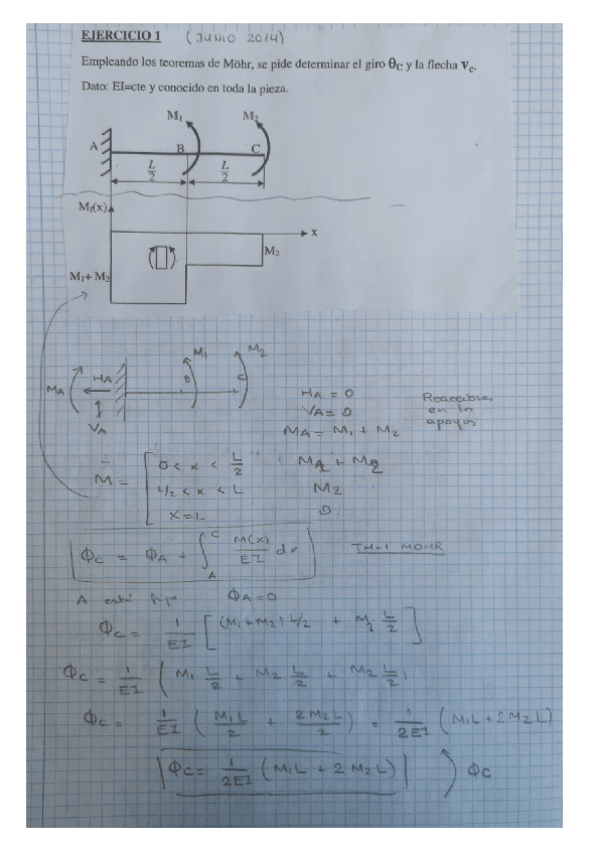 EJERCICIO 1 (JUNIO 2014)
Empleando los teoremas de Möhr, se pide determinar el giro θC y la flecha vc.
Dato: EI=cte y conocido en toda la pieza.
M₁ M₂
A B C
L/2 L/2
Mf(x)
x
M₂
M₁+ M₂
M₁ M₂
MA HA B C
VA
HA = 0 Reacciones
VA = 0 en los
MA = M₁ + M₂ apoyos
M = 0 < x < L/2 M₁ + M₂
L/2 < x < L M₂
x = L 0
ϕC = ϕA + ∫ A C M(x)/EI dx TH-1 MOHR
A está fijo ϕA = 0
ϕC = 1/EI [ (M₁ + M₂) L/2 + M₂ L/2 ]
ϕC = 1/EI ( M₁ L/2 + M₂ L/2 + M₂ L/2 )
ϕC = 1/EI ( M₁L/2 + 2M₂L/2 ) = 1/2EI (M₁L + 2M₂L)
ϕC = 1/2EI (M₁L + 2M₂L) ϕC